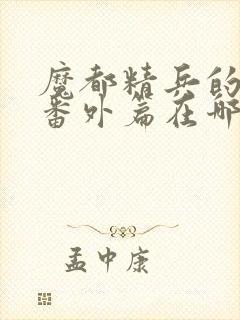 魔都精兵的
番外篇在哪
孟中康